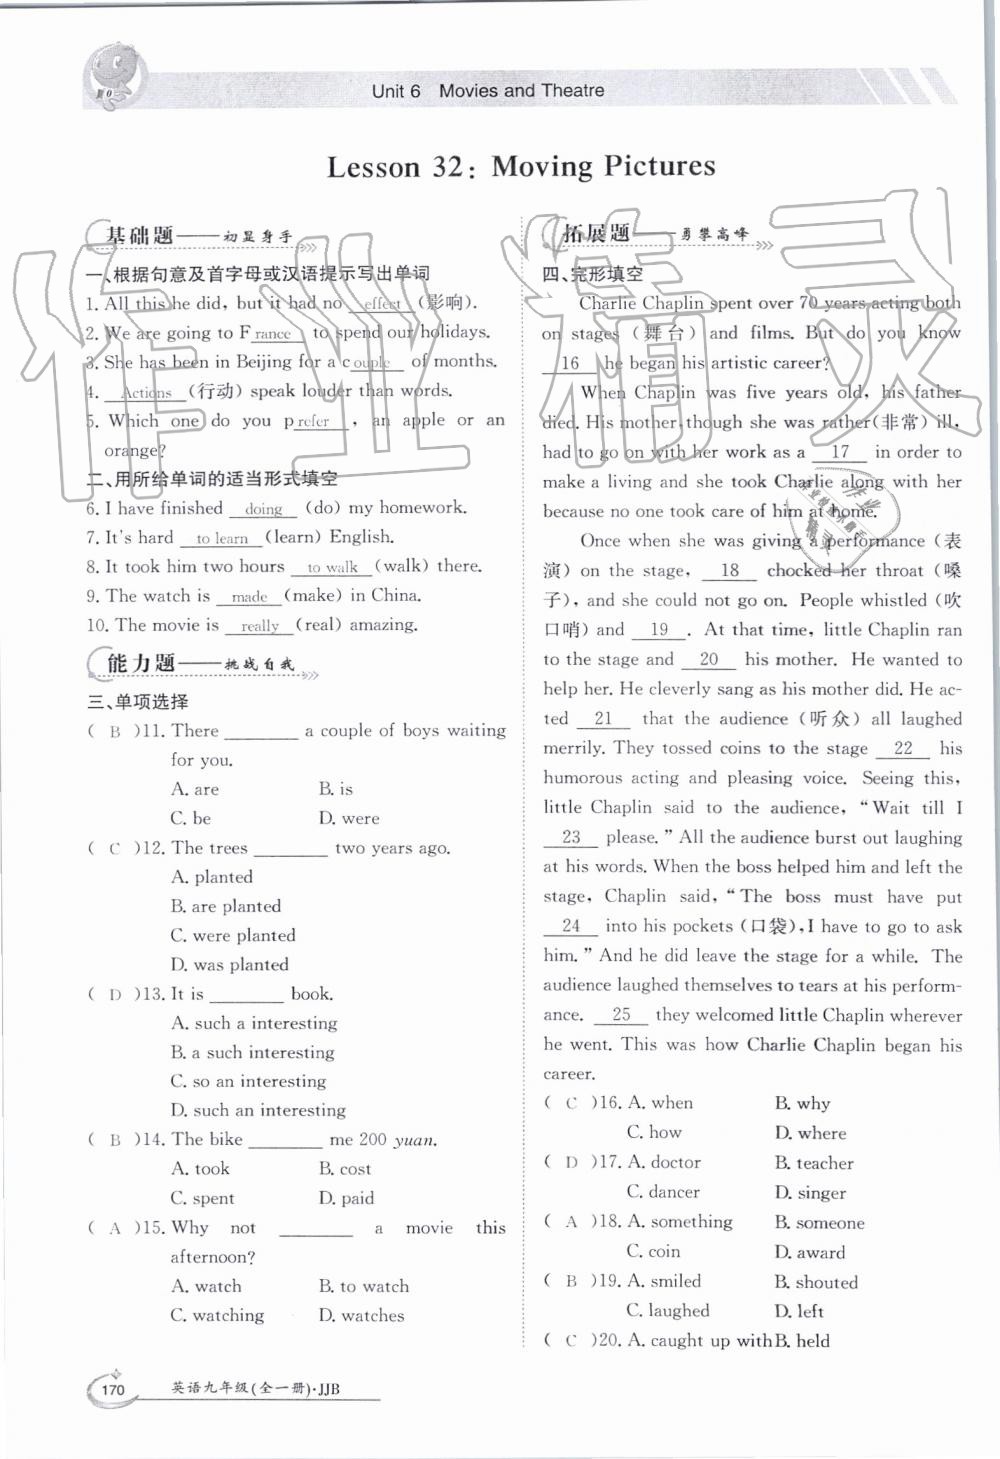 Unit 6 Movies and Theatre
Lesson 32: Moving Pictures
基础题——初显身手
一、根据句意及首字母或汉语提示写出单词
1. All this he did, but it had no effect (影响).
2. We are going to F rance to spend our holidays.
3. She has been in Beijing for a c ouple of months.
4. Actions (行动) speak louder than words.
5. Which one do you p refer , an apple or an
orange?
二、用所给单词的适当形式填空
6. I have finished doing (do) my homework.
7. It's hard to learn (learn) English.
8. It took him two hours to walk (walk) there.
9. The watch is made (make) in China.
10. The movie is really (real) amazing.
能力题——挑战自我
三、单项选择
( B )11. There ________ a couple of boys waiting
for you.
A. are B. is
C. be D. were
( C )12. The trees ________ two years ago.
A. planted
B. are planted
C. were planted
D. was planted
( D )13. It is ________ book.
A. such a interesting
B. a such interesting
C. so an interesting
D. such an interesting
( B )14. The bike ________ me 200 yuan.
A. took B. cost
C. spent D. paid
( A )15. Why not ________ a movie this
afternoon?
A. watch B. to watch
C. watching D. watches
拓展题——勇攀高峰
四、完形填空
Charlie Chaplin spent over 70 years acting both
on stages (舞台) and films. But do you know
16 he began his artistic career?
When Chaplin was five years old, his father
died. His mother, though she was rather(非常) ill,
had to go on with her work as a 17 in order to
make a living and she took Charlie along with her
because no one took care of him at home.
Once when she was giving a performance (表
演) on the stage, 18 chocked her throat (嗓
子), and she could not go on. People whistled (吹
口哨) and 19 . At that time, little Chaplin ran
to the stage and 20 his mother. He wanted to
help her. He cleverly sang as his mother did. He ac-
ted 21 that the audience (听众) all laughed
merrily. They tossed coins to the stage 22 his
humorous acting and pleasing voice. Seeing this,
little Chaplin said to the audience, “Wait till I
23 please.” All the audience burst out laughing
at his words. When the boss helped him and left the
stage, Chaplin said, “The boss must have put
24 into his pockets (口袋), I have to go to ask
him.” And he did leave the stage for a while. The
audience laughed themselves to tears at his perform-
ance. 25 they welcomed little Chaplin wherever
he went. This was how Charlie Chaplin began his
career.
( C )16. A. when B. why
C. how D. where
( D )17. A. doctor B. teacher
C. dancer D. singer
( A )18. A. something B. someone
C. coin D. award
( B )19. A. smiled B. shouted
C. laughed D. left
( C )20. A. caught up with B. held
170 英语九年级(全一册)·JJB
作业精灵